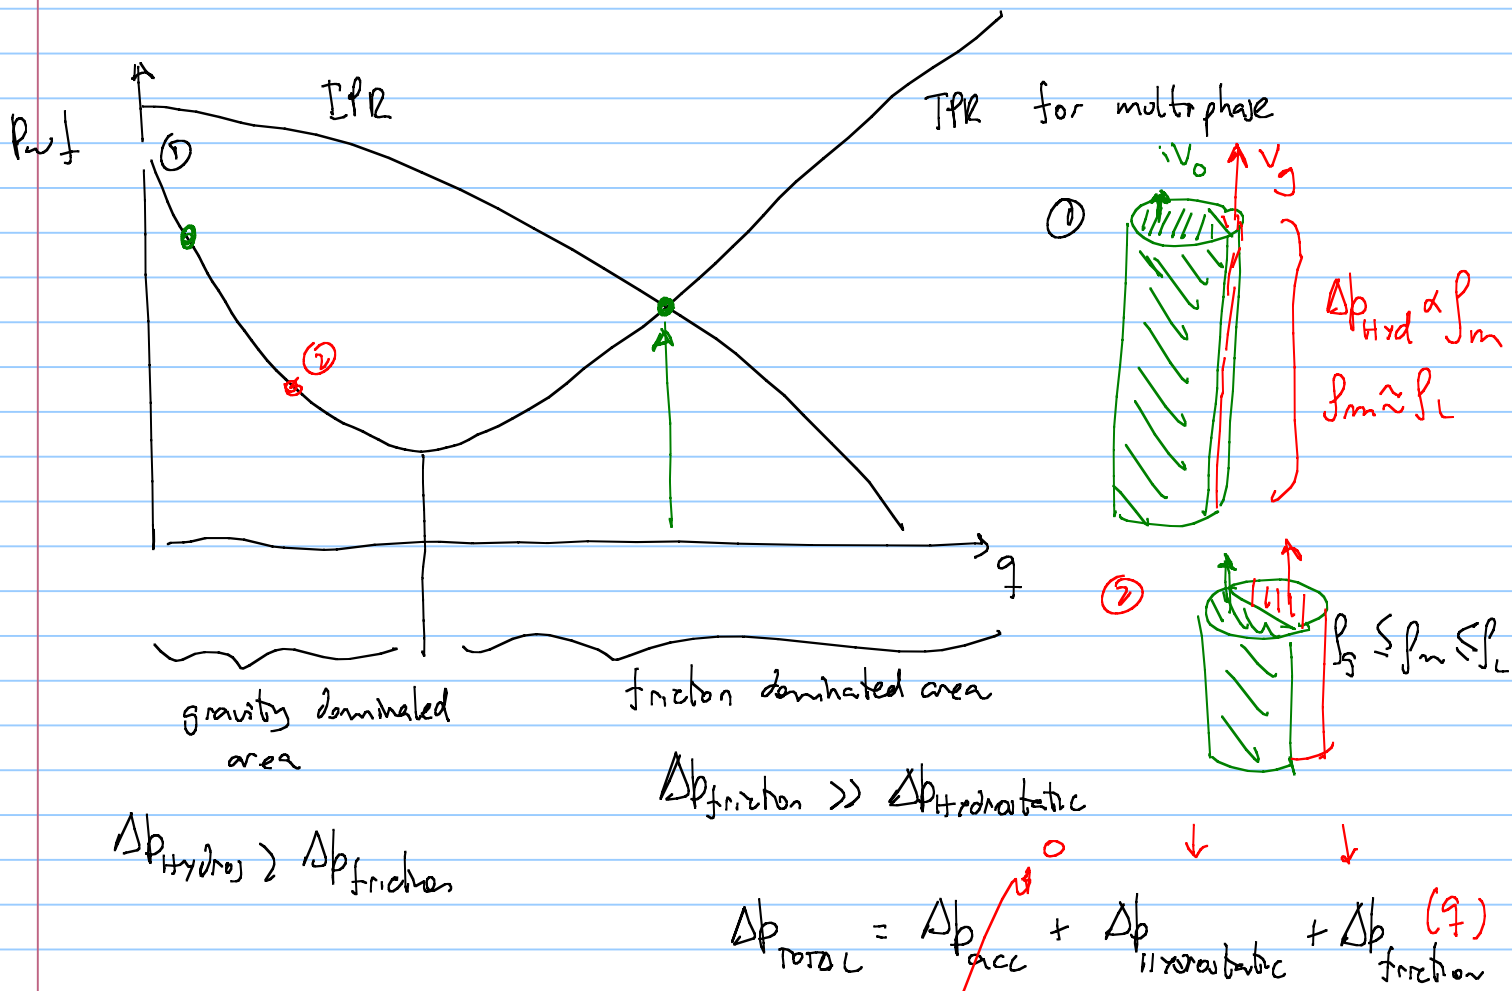 IPR
Pwf
①
②
TPR for multiphase
Vo
Vg
①
ΔpHyd ∝ ρm
ρm ≈ ρL
q
②
ρg ≤ ρm ≤ ρL
gravity dominated
area
friction dominated area
Δpfriction >> ΔpHydrostatic
ΔpHydros > Δpfriction
0
ΔpTOTAL = Δpacc + ΔpHydrostatic + Δpfriction (q)